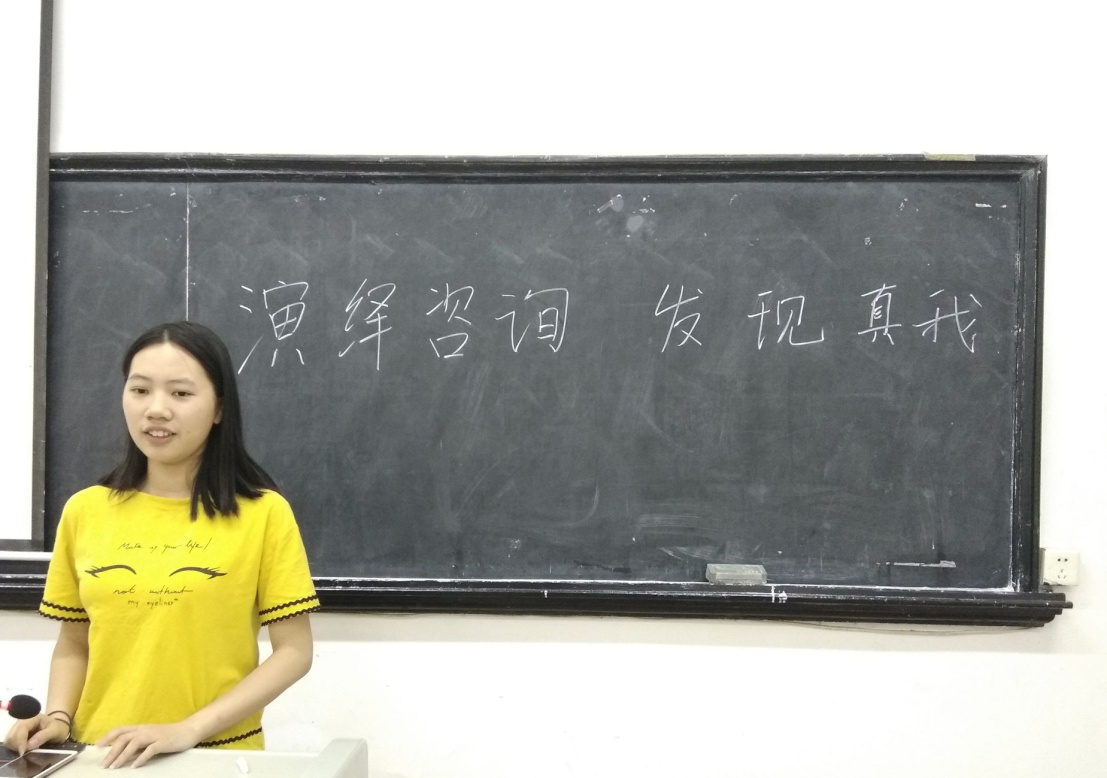 演绎咨询 发现真我
Make up your life!
not without
my eyeliner"